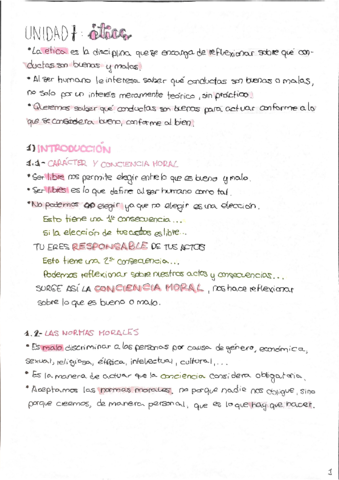 UNIDAD 1: ética
* La ética es la disciplina que se encarga de reflexionar sobre qué con-
ductas son buenas y malas.
* Al ser humano le interesa saber qué conductas son buenas o malas,
no solo por un interés meramente teórico, sin práctico.
* Queremos saber qué conductas son buenas para actuar conforme a lo
que se considera bueno, conforme al bien.
1) INTRODUCCIÓN
1.1- CARÁCTER Y CONCIENCIA MORAL
* Ser libre nos permite elegir entre lo que es bueno y malo.
* Ser libres es lo que define al ser humano como tal.
* No podemos no elegir ya que no elegir es una elección.
Esto tiene una 1ª consecuencia...
Si la elección de tus actos es libre...
TU ERES RESPONSABLE DE TUS ACTOS
Esto tiene una 2ª consecuencia...
Podemos reflexionar sobre nuestros actos y consecuencias...
SURGE ASÍ LA CONCIENCIA MORAL, nos hace reflexionar
sobre lo que es bueno o malo.
1.2- LAS NORMAS MORALES
* Es malo discriminar a las personas por causa de género, económica,
sexual, religiosa, étnica, intelectual, cultural,...
* Es la manera de actuar que la conciencia considera obligatoria.
* Aceptamos las normas morales, no porque nadie nos obligue, sino
porque creemos, de manera personal, que es lo que hay que hacer.
1